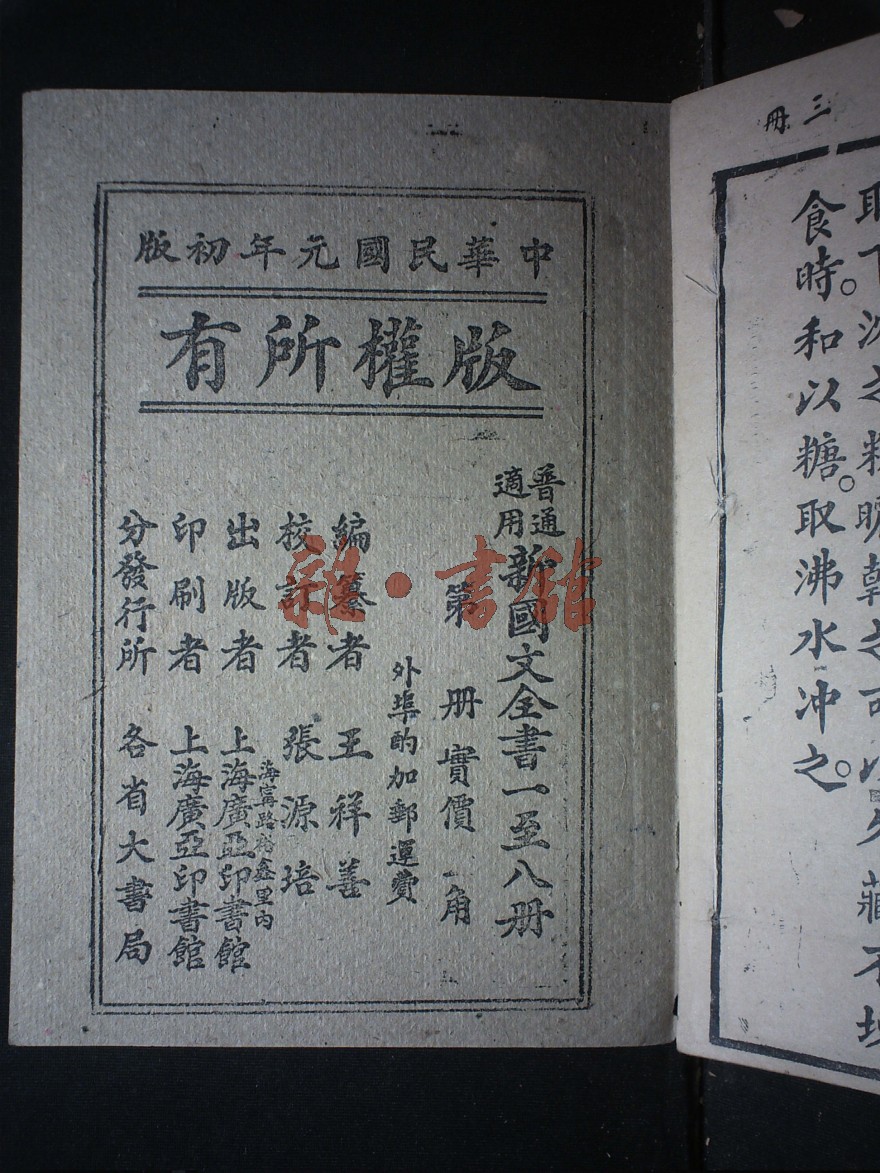 三冊
食時。和以糖。取沸水冲之。
中華民國元年初版
版權所有
普通
適用
新國文全書一至八册
第 册實價一角
外埠酌加郵運費
編纂者 王祥善
校訂者 張源培
海寧路
鑫里內
出版者 上海廣亞印書館
印刷者 上海廣亞印書館
分發行所 各省大書局
雜·書館